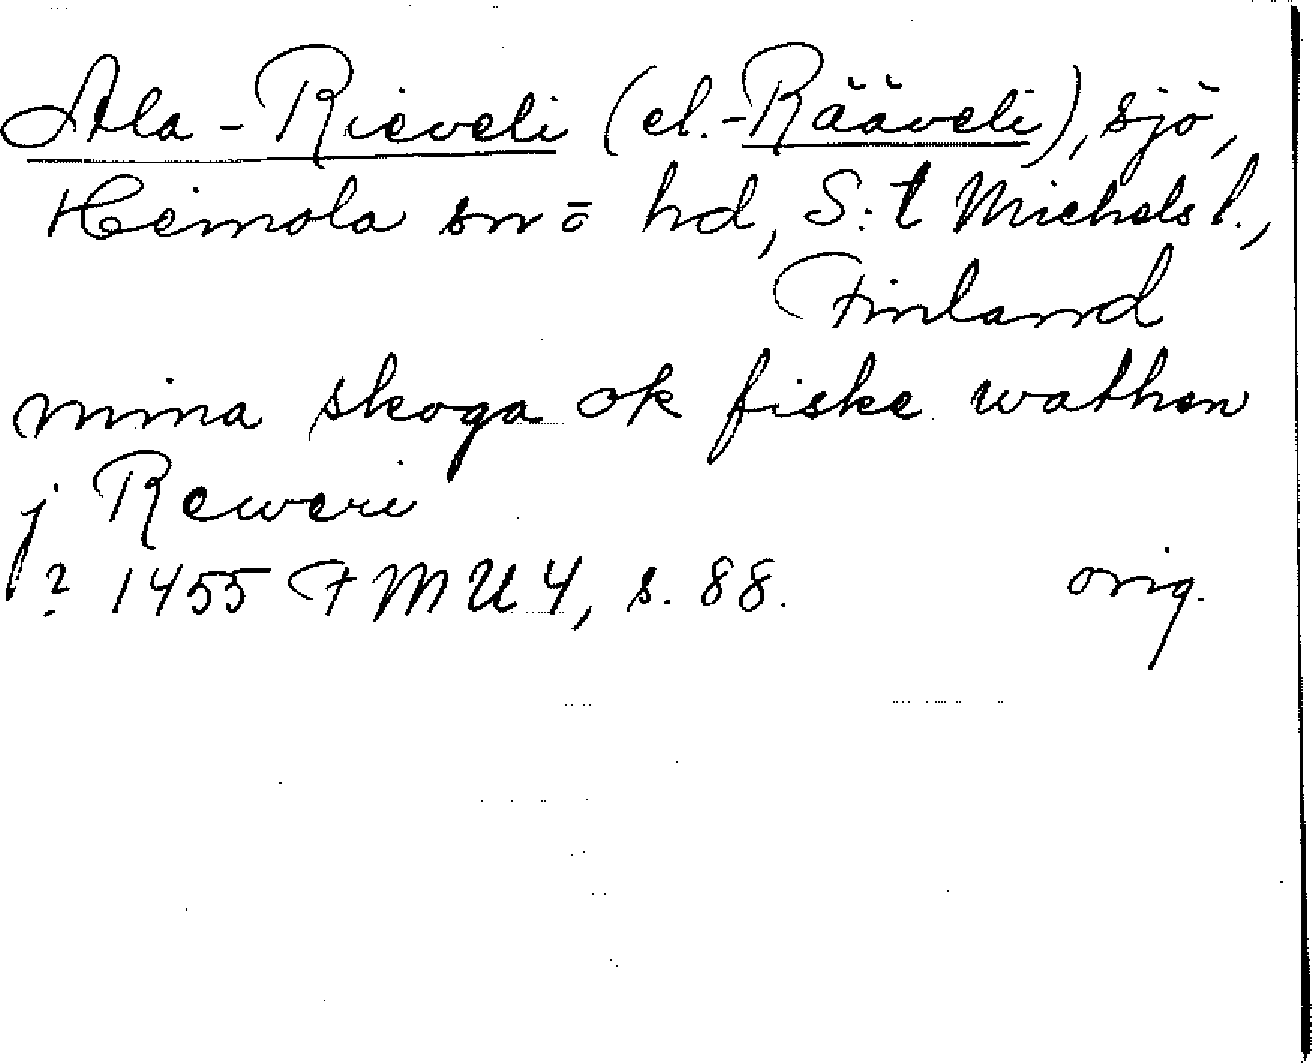 Ala-Rieveli (el.-Rääveli), sjö,
Heinola sn o hd, S:t Michels l.,
Finland
mina skoga ok fiske wathen
j Reweri
? 1455 FMU 4, s. 88. orig.